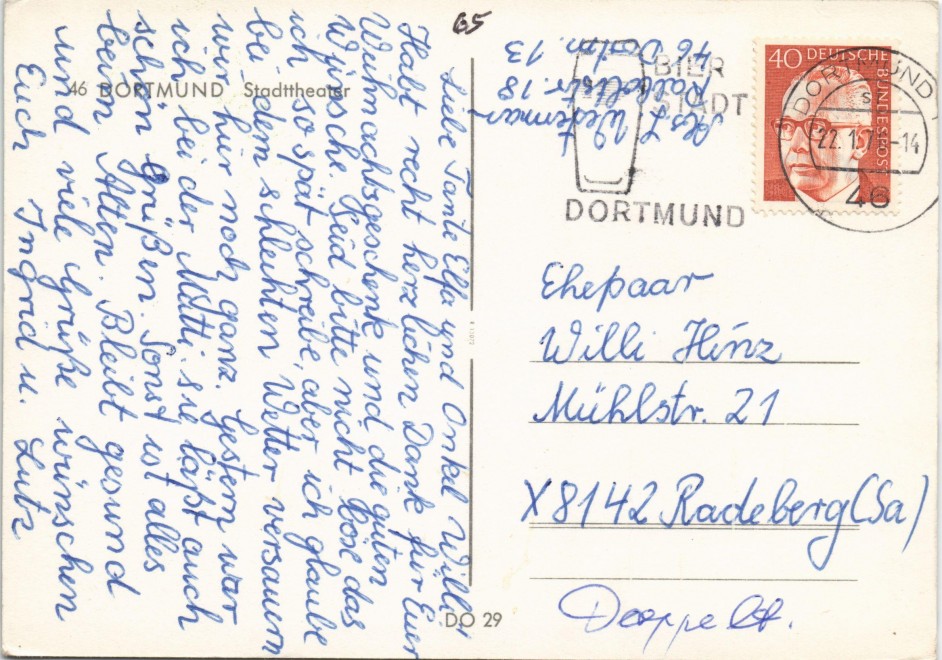 65
46 DORTMUND Stadttheater
Liebe Tante Elfa und Onkel Willi
Habt recht herzlichen Dank für Euer
Weihnachtsgeschenk und die guten
Wünsche. Seid bitte nicht böse das
ich so spät schreibe, aber ich glaube
bei dem schlechten Wetter versauern
wir hier noch ganz. Gestern war
ich bei der Mutti. sie läßt auch
schön Grüßen. Sonst ist alles
beim Alten. Bleibt gesund
und viele Grüße wünschen
Euch Ingrid u. Lutz
DO 29
Abs L Westerman
18
46 Dortm. 13
BIER
STADT
DORTMUND
40 DEUTSCHE BUNDESPOST
DORTMUND
22. 1. 7 -14
46
Ehepaar
Willi Hinz
Mühlstr. 21
X8142 Radeberg (Sa)
Doppelt.